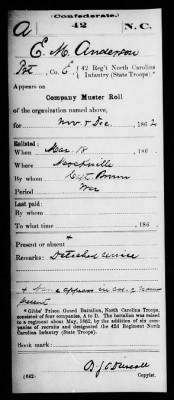 (Confederate.)
A 42 N.C.
E. M. Anderson
Pvt, Co. E, { 42 Reg't North Carolina
Infantry (State Troops).*
Appears on
Company Muster Roll
of the organization named above,
for Nov. & Dec., 1862
Enlisted:
When Mar. 18, 186
Where Mocksville
By whom Capt. Brown
Period War
Last paid:
By whom
To what time , 186 .
Present or absent
Remarks: Detached service
*Gibbs' Prison Guard Battalion, North Carolina Troops,
consisted of four companies, A to D. The battalion was raised
to a regiment about May, 1862, by the addition of six companies
of recruits and designated the 42d Regiment North
Carolina Infantry (State Troops).
Book mark:
(642) Copyist.